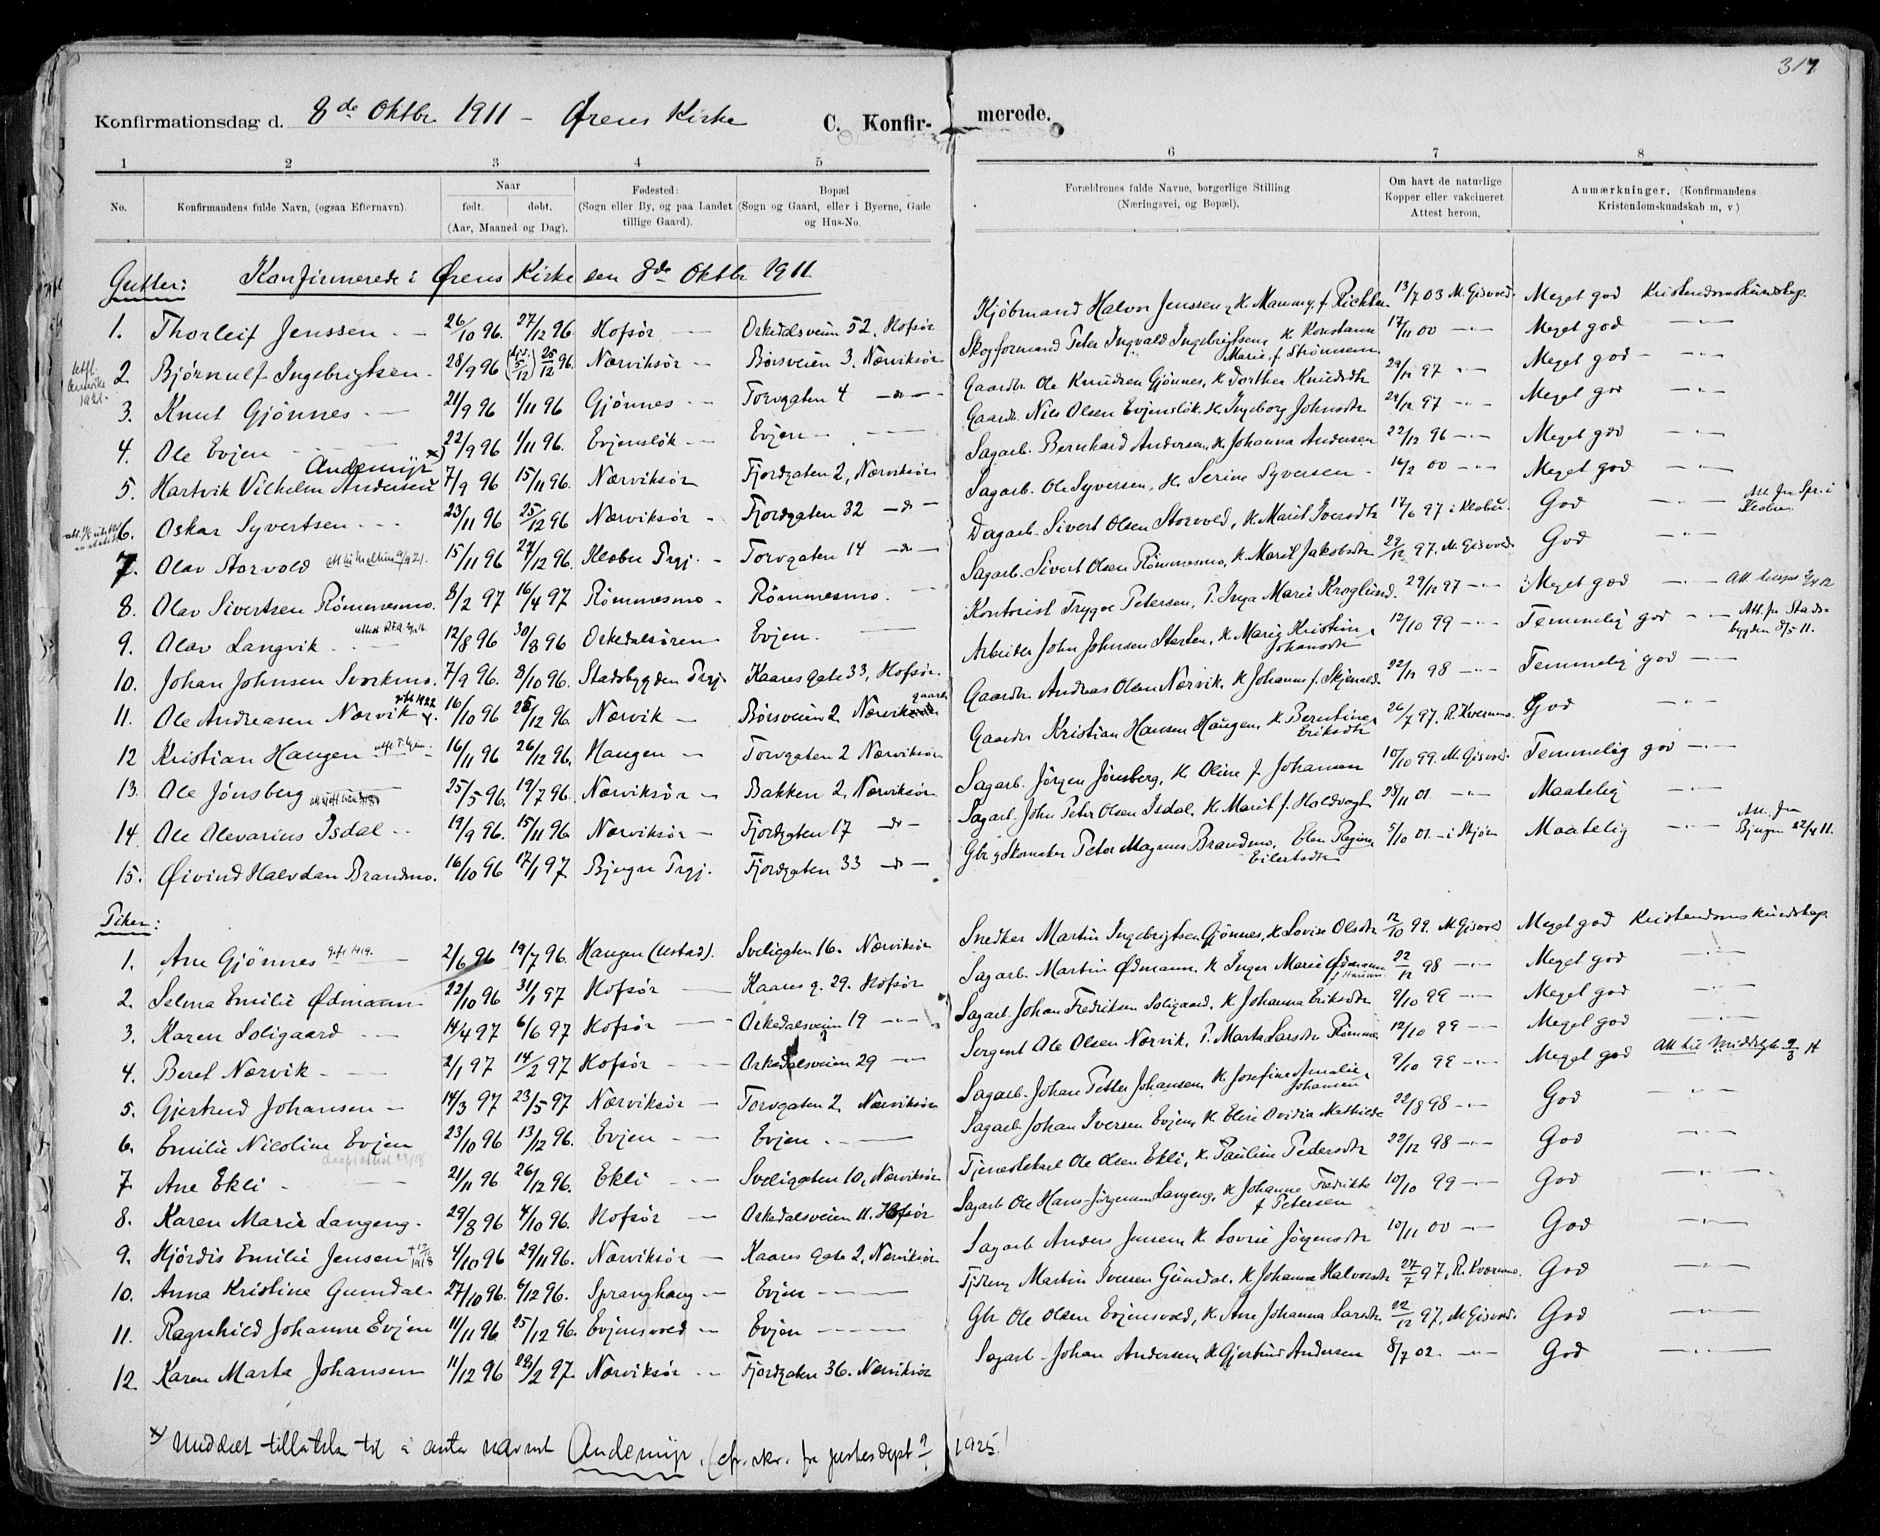 317
Konfirmationsdag d. 8de Oktbr 1911 - Ørens Kirke C. Konfir- merede.
1 2 3 4 5 6 7 8
No. Konfirmandens fulde Navn, (ogsaa Efternavn). Naar født. døbt. (Aar, Maaned og Dag). Fødested: (Sogn eller By, og paa Landet tillige Gaard). Bopæl (Sogn og Gaard, eller i Byerne, Gade og Hus-No. Forældrenes fulde Navne, borgerlige Stilling (Næringsvei, og Bopæl). Om havt de naturlige Kopper eller vakcineret Attest herom. Anmærkninger. (Konfirmandens Kristendomskundskab m, v)
Gutter: Konfirmerede i Ørens Kirke den 8de Oktbr 1911.
1. Thorleif Jenssen. — 26/10 96. 27/12 96 Hofsør — Orkedalsveien 52, Hofsør Kjøbmand Halvor Jenssen, H. Mammy, f. 13/7 03 M. Gisvold. Meget god Kristendomskundskap
2. Bjørnulf Ingebrigtsen. 28/9 96 25/12 96. Nærviksør — Børsveien 3, Nærviksør Skogformand Peter Ingvald Ingebrigtsen, H. Konstanse Marie f. Strømsem 17/11 00 —"— Meget god —"—
3. Knut Gjønnes. — 21/9 96 1/11 96 Gjønnes — Torvgaten 4 —do— Gaardbr. Ole Knudsen Gjønnes, H. Dorthea Knudsdtr 29/12 97 —"— Meget god —"—
4. Ole Evjen — 22/9 96 1/11 96. Evjensløk — Evjen — Gaardb. Nils Olsen Evjensløk, H. Ingeborg Johnsdtr 29/12 97 —"— Meget god —"—
Andemyr x)
5. Hartvik Vilhelm Andersen 7/9 96 15/11 96. Nærviksør Fjordgaten 2, Nærviksør Sagarb. Bernhard Andersen, H. Johanna Andersen 22/12 96 —"— Meget god —"—
6. Oskar Syvertsen — 23/11 96 25/12 96 Nærviksør — Fjordgaten 32 —do— Sagarb. Ole Syversen, H. Serine Syversen 14/2 00 —"— Meget god —"—
7. Olav Storvold 15/11 96 27/12 96. Klæbu Prgj. — Torvgaten 14 —do— Dagarb. Sivert Olsen Storvold, H. Marit Iversdtr 17/6 97 i Klæbu. God —"— Att. fra Spr. i Klæbu.
8. Olav Sivertsen Rømmesmo. 8/2 97 16/4 97 Rømmesmo — Rømmesmo. — Sagarb. Sivert Olsen Rømmesmo, H. Marit Jakobsdtr 29/12 97. M. Gisvold. God —"—
9. Olav Langvik. — 12/8 96 30/8 96 Orkedalsøren Evjen. — Kontorist Trygve Petersen, P. Inga Marie Kroglund. 29/12 97 —"— Meget god —"—
10. Johan Johnsen Svorkmo. 7/9 96. 8/10 96. Stadsbygden Prgj. Kaaresgate 33, Hofsør. Arbeider John Johnsen, H. Marie Kristine Johansdtr 12/10 99 —"— Temmelig god —"— Att. fra Stadsbygden 8/5 11.
11. Ole Andreasen Nærvik 16/10 96 26/12 96. Nærvik — Børsveien 2, Nærvik gaard Gaardbr. Andreas Olsen Nærvik, H. Johanne f. Skjenald. 22/12 98 —"— Temmelig god —"—
12 Kristian Haugen 16/11 96 26/12 96. Haugen — Torvgaten 2 Nærviksør Gaardbr Kristian Hansen Haugen, H. Berntine Eriksdtr 26/7 97, R. Kvernmo. God —"—
13. Ole Jønsberg 25/5 96. 19/7 96. Nærviksør — Bakken 2, Nærviksør Sagarb. Jørgen Jønsberg, H. Oline f. Johansen 10/10 99. M. Gisvold. Temmelig god —"—
14 Ole Olevarius Isdal — 19/9 96. 15/11 96. Nærviksør — Fjordgaten 17 —do— Sagarb. John Peter Olsen Isdal, H. Marit f. Holdvogt 28/11 01. —"— Maatelig —"—
15. Øivind Halvdan Brandmo. 16/10 96 17/1 97 Bjugn Prgj. Fjordgaten 33 —do— Gbr. og Skomaker Peter Magnus Brandmo, Elen Regine Eilertsdtr 5/10 01. — i Skjør Maatelig —"— Att. fra Bjugn 22/4 11.
Piker:
1. Ane Gjønnes gift 1919. 2/6 96 19/7 96. Haugen (Ustad). Sveligaten 16. Nærviksør Snedker Martin Ingebrigtsen Gjønnes, H. Lovise Olsdtr 12/10 99. M. Gisvold Meget god Kristendomskundskap
2. Selma Emilie Ødmann 22/10 96 31/1 97 Hofsør — Kaares g. 29. Hofsør Sagarb. Martin Ødmann. H. Inger Marie Ødmann 22/12 98 —"— Meget god —"—
3. Karen Soligaard — 14/4 97 6/6 97 Hofsør — Orkedalsveien 19 —"— Sagarb. Johan Fredriksen Soligaard, H. Johanna Eriksdtr 9/10 99 —"— Meget god —"—
4. Beret Nærvik — 2/1 97 14/2 97 Hofsør — Orkedalsveien 29 —"— Sergent Ole Olsen Nærvik, P. Marta Larsdtr Rømme 12/10 99 —"— Meget god —"—
5. Gjertrud Johansen — 14/3 97 23/5 97 Nærviksør — Torvgaten 2, Nærviksør Sagarb. Johan Petter Johansen, H. Josefine Amalie Johansen 9/10 99 —"— Meget god Att. til
6. Emilie Nicoline Evjen 23/10 96 13/12 96. Evjen — Evjen. — Sagarb. Johan Iversen Evjen, H. Elise Ovidia Mathilde 22/8 98 —"— God —"—
7 Ane Ekli — 21/11 96 26/12 96. Ekli — Sveligaten 10, Nærviksør Tjenestekarl Ole Olsen Ekli, H. Pauline Pedersdtr 22/12 98 —"— God —"—
8. Karen Marie Langeng. 29/8 96 4/10 96. Hofsør — Orkedalsveien 11. Hofsør Sagarb Ole Hans Jørgensen Langeng, H. Johanne Fredrikke f Petersen 10/10 99 —"— God —"—
9. Hjørdis Emilie Jensen 4/10 96 29/11 96. Nærviksør — Kaares gate 2, Nærviksør Sagarb Anders Jensen, H. Lovise Jørgensdtr 10/11 00 —"— God —"—
10. Anna Kristine Gumdal. 27/10 96. 6/12 96. Spranghaug — Evjen — Martin Iversen Gumdal, H. Johanna Halvorsdtr 27/7 97, R. Kvernmo. God —"—
11. Ragnhild Johanne Evjen 11/11 96 25/12 96. Evjensvold — Evjen — Gbr Ole Olsen Evjensvold, H. Ane Johanna Larsdtr 22/12 97, M. Gisvold. God —"—
12. Karen Marta Johansen 11/12 96 28/2 97. Nærviksør — Fjordgaten 36. Nærviksør Sagarb. Johan Andersen, H. Gjertrud Andersen 8/7 02. —"— God —"—
x) Meddelt tillatelse til å anta navnet Andemyr. (cfr. skr. fra justisdept 1925!